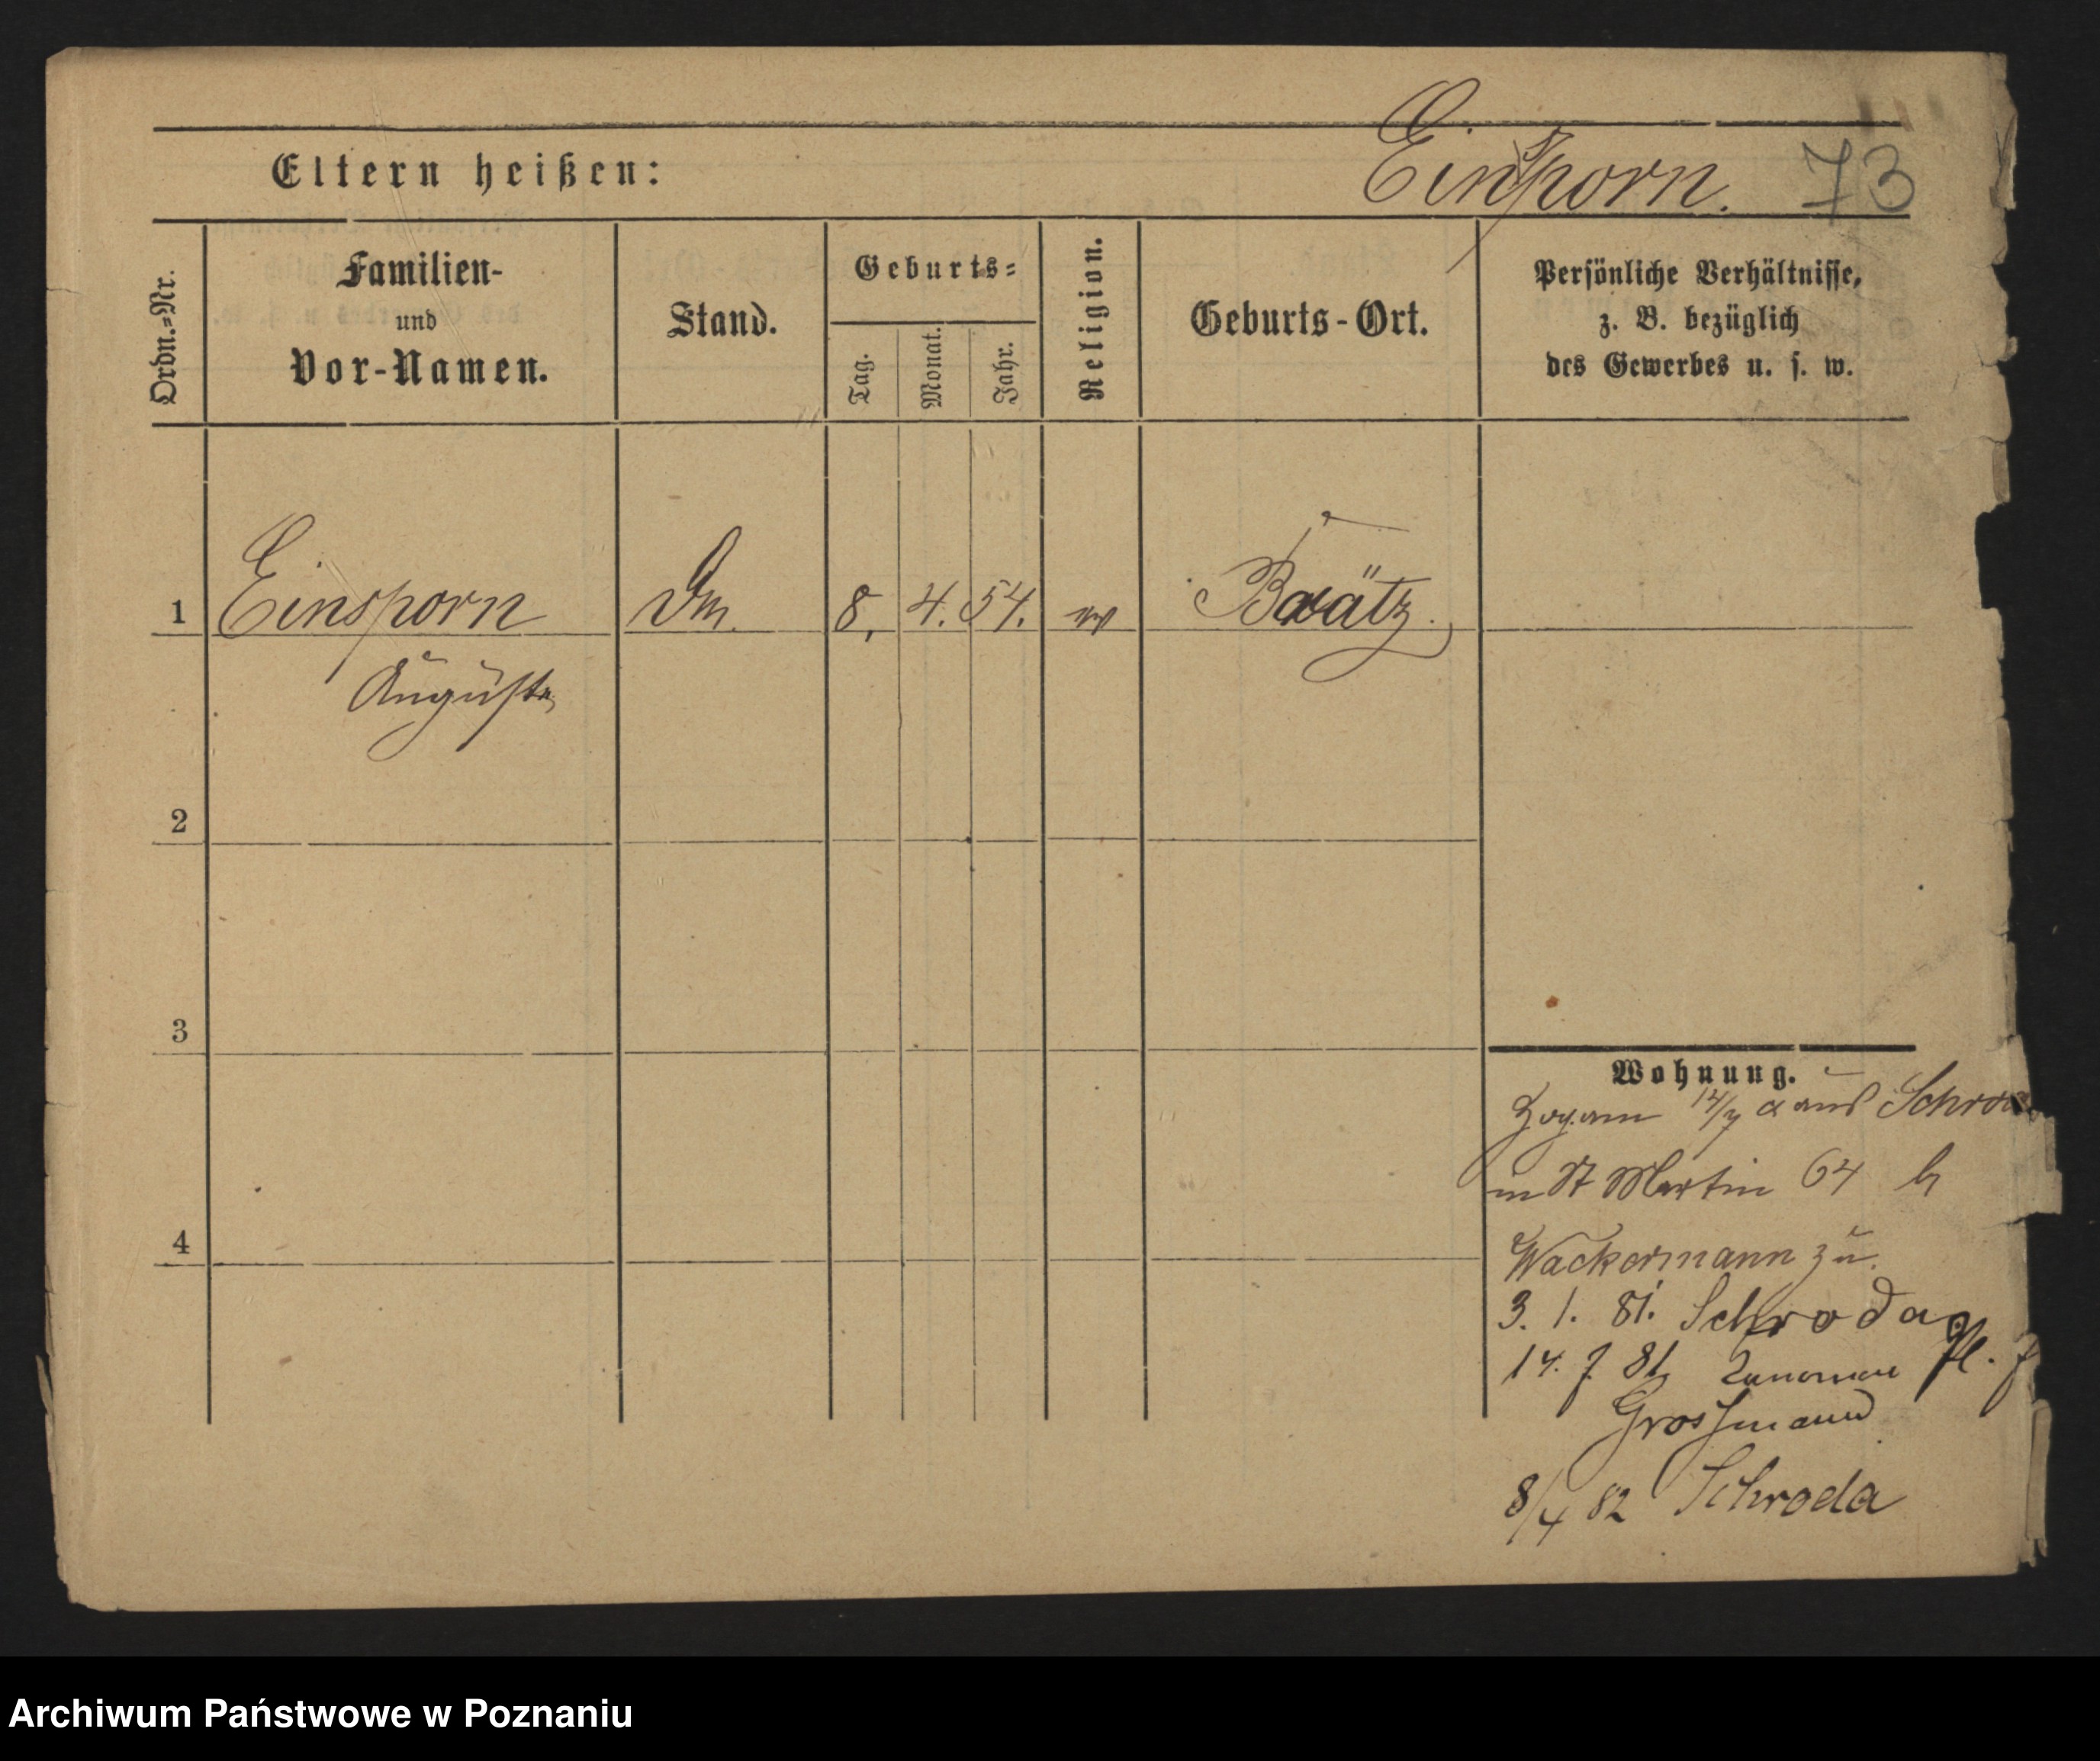 Eltern heißen:
Einsporn. 73
Ordn.=Nr.
Familien-
und
Vor-Namen.
Stand.
Geburts=
Tag.
Monat.
Jahr.
Religion.
Geburts-Ort.
Persönliche Verhältnisse,
z. B. bezüglich
des Gewerbes u. s. w.
1 Einsporn 8. 4. 54. Brätz.
Auguste
2
3
4
Wohnung.
Zog am 14/7 a aus
in St Martin 64 b
Wackermann zu.
3. 1. 81. Schroda
14. 7. 81. Pl. 7
Grossmann
8/4 82 Schroda
Archiwum Państwowe w Poznaniu